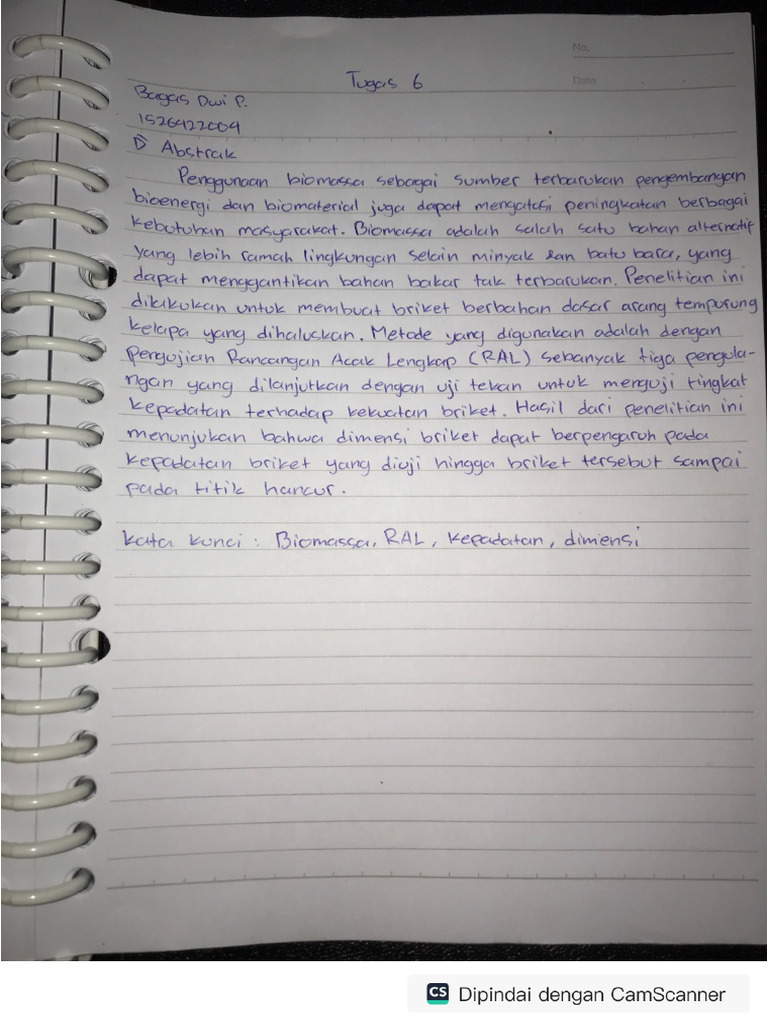 No.
Date
Tugas 6
Bagas Dwi P.
1526422004
Abstrak
Penggunaan biomassa sebagai sumber terbarukan pengembangan
bioenergi dan biomaterial juga dapat mengatasi peningkatan berbagai
kebutuhan masyarakat. Biomassa adalah salah satu bahan alternatif
yang lebih ramah lingkungan selain minyak dan batu bara, yang
dapat menggantikan bahan bakar tak terbarukan. Penelitian ini
dilakukan untuk membuat briket berbahan dasar arang tempurung
kelapa yang dihaluskan. Metode yang digunakan adalah dengan
Pengujian Rancangan Acak Lengkap (RAL) sebanyak tiga pengula-
ngan yang dilanjutkan dengan uji tekan untuk menguji tingkat
kepadatan terhadap kekuatan briket. Hasil dari penelitian ini
menunjukan bahwa dimensi briket dapat berpengaruh pada
kepadatan briket yang diuji hingga briket tersebut sampai
pada titik hancur.
kata kunci : Biomassa, RAL, kepadatan, dimensi
CS Dipindai dengan CamScanner